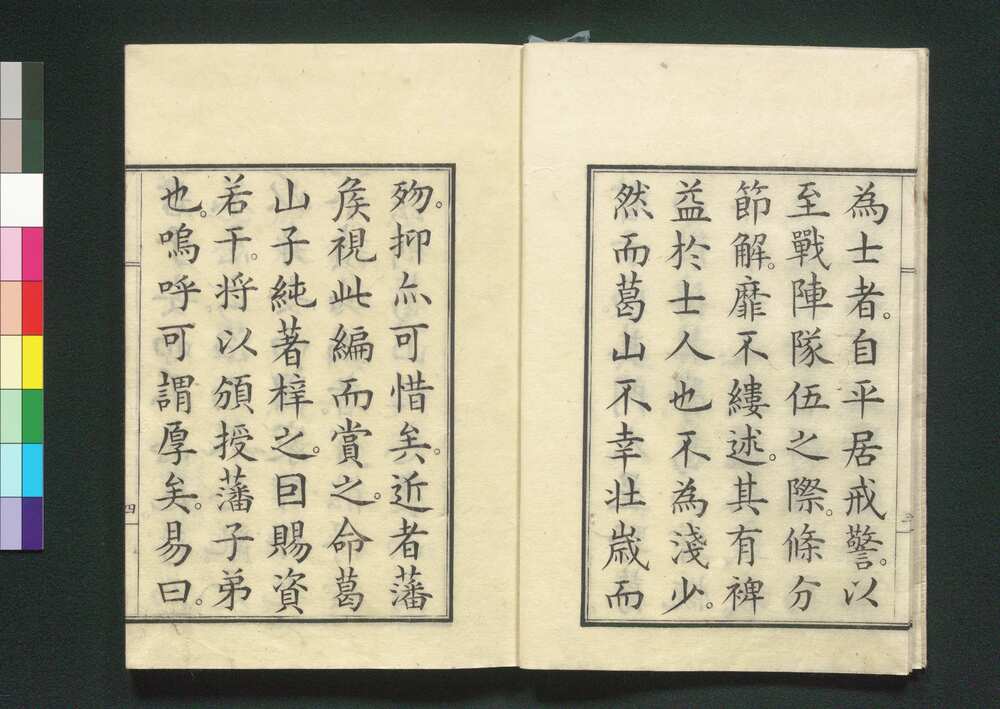 為士者。自平居戒警。以
至戰陣隊伍之際。條分
節解。靡不縷述。其有裨
益於士人也不為淺少。
然而葛山不幸壮歳而
歾。抑亦可惜矣。近者藩
矦視此編而賞之。命葛
山子純著梓之。因賜資
若干。将以頒授藩子弟
也。嗚呼可謂厚矣。易曰。
四